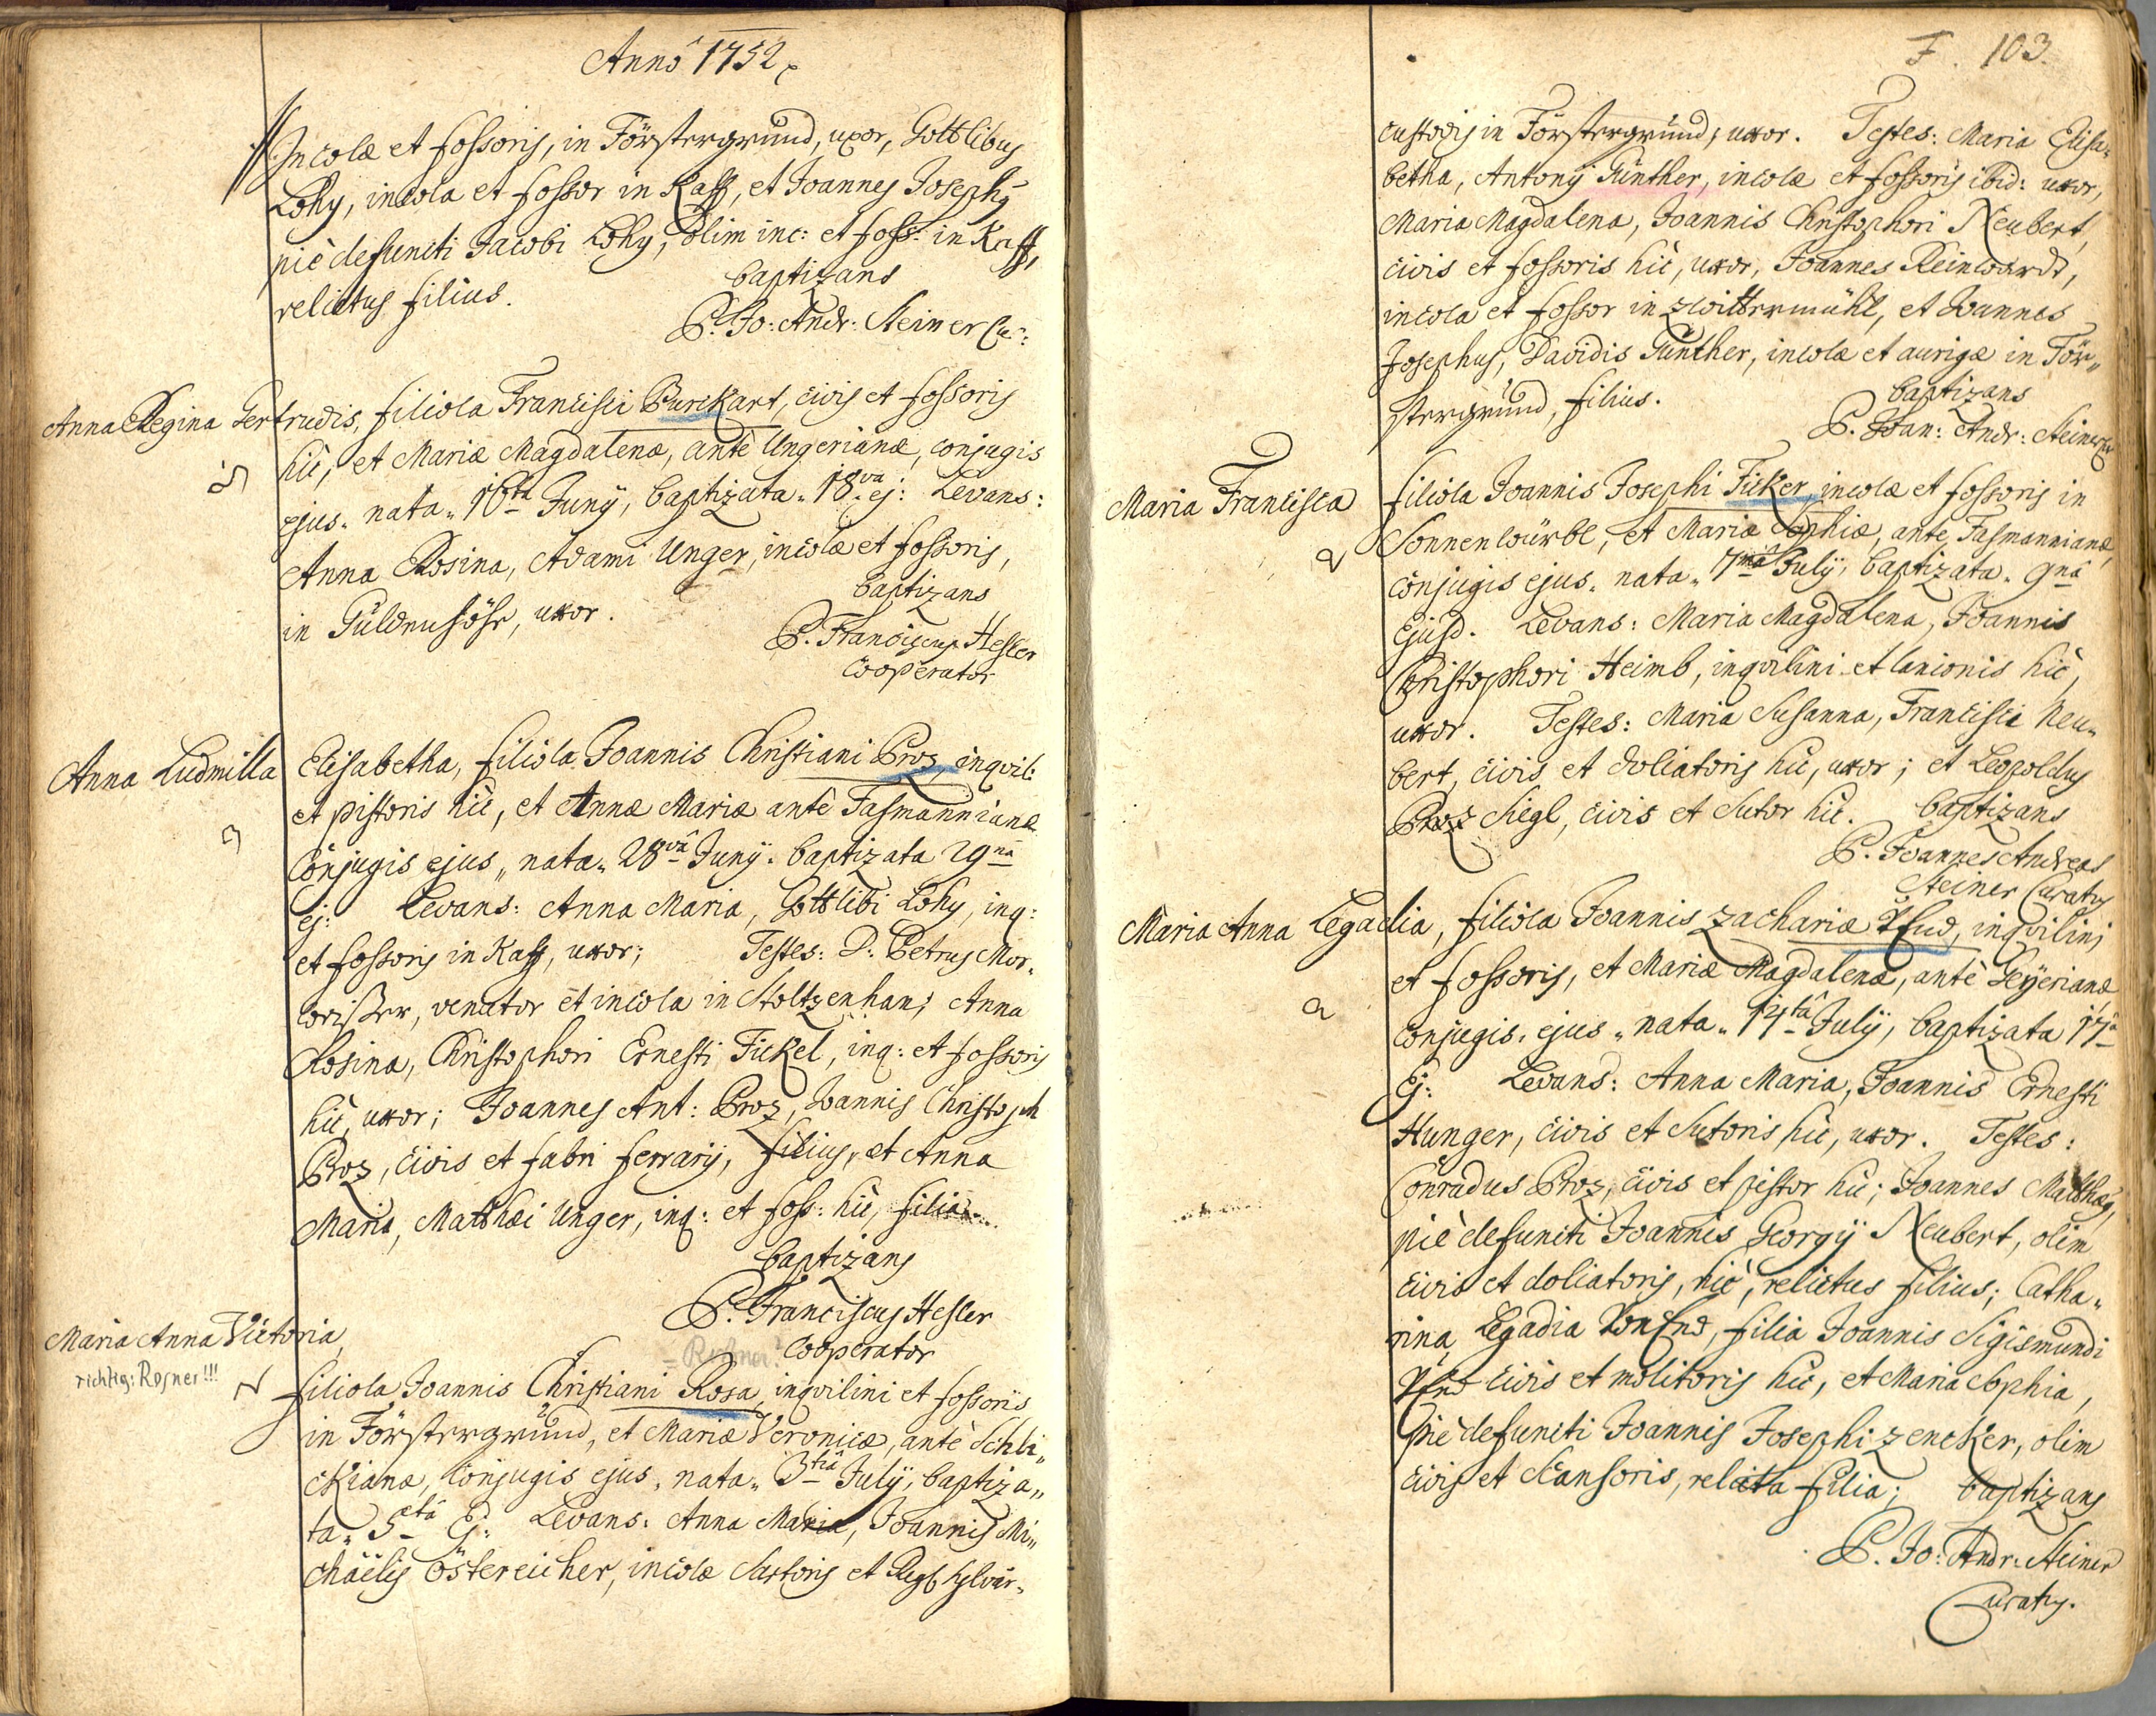 Anno 1752
Incolæ et fossoris, in Förstergrund, uxor, Gottlibus
Lohy, incola et fossor in Kaff, et Joannes Josephg
piè defuncti Jacobi Lohy, olim inc: et foss: in Kaff,
relictus filius. baptizans
P. Jo: Andr: Steiner Cu:
Anna Regina Gertrudis, filiola Francisci Burckart, civis et fossoris
hic, et Mariæ Magdalenæ, antè Ungerianæ, conjugis
ejus. nata. 16ta Junÿ, baptizata. 18va ej: Levans:
Anna Rosina, Adami Unger, incolæ et fossoris,
in Güldenhöhe, uxor. baptizans
P. Franciscus Hesler
Cooperator
Anna Ludmilla Elisabetha, filiola Joannis Christiani Proz, inqvil:
et pistoris hic, et Annæ Mariæ antè Tasmannianæ
Conjugis ejus, nata. 28vâ Junÿ. baptizata 29nâ
ej: Levans: Anna Maria, Gottlibi Lohy, inq:
et fossoris in Kaff, uxor; Testes: D: Petrus Mor„
wißer, venator et incola in Stoltzenhan; Anna
Rosina, Christophori Ernesti Fickel, inq: et fossoris
hic, uxor; Joannes Ant: Proz, Joannis Christoph
Proz, civis et fabri ferrarÿ, filius, et Anna
Maria, Matthæi Unger, inq: et foss: hic, filia.
baptizans
P. Franciscus Hesler
Cooperator
Maria Anna Victoria,
richtig: Rosner!!!
filiola Joannis Christiani Rosa, inqvilini et fossoris
in Förstergrund, et Mariæ Veronicæ, antè Schli„
ckianæ, Conjugis ejus, nata. 3tiâ Julÿ, baptiza„
ta. 5tâ Ej: Levans: Anna Maria, Joannis Mi„
chaëlis Östereicher, incolæ Sartoris et Reg: sylvar„
F. 103.
custodis in Förstergrund, uxor. Testes: Maria Elisa„
betha, Antonÿ Günther, incolæ et fossoris ibid: uxor,
Maria Magdalena, Joannis Christophori Neubert,
civis et fossoris hic, uxor, Joannes Reinwardt,
incola et fossor in Zwittermühl, et Joannes
Josephus, Davidis Günther, incolæ et aurigæ in För„
stergrund, filius. baptizans
P. Joan: Andr: Steiner Cu
Maria Francisca filiola Joannis Josephi Ficker, incolæ et fossoris in
Sonnenwürbl, et Mariæ Sophiæ, ante Tasmannianæ,
conjugis ejus. nata. 7mâ Julÿ, baptizata. 9nâ
Ejusd. Levans: Maria Magdalena, Joannis
Christophori Heimb, inqvilini et lanionis hic,
uxor. Testes: Maria Susanna, Francisci Neu„
bert, civis et doliatoris hic, uxor; et Leopoldus
Proz Siegl, civis et Sutor hic. baptizans
P. Joannes Andreas
Steiner Curatus
Maria Anna Legadia, filiola Joannis Zachariæ End, inqvilini
et fossoris, et Mariæ Magdalenæ, antè Geÿerianæ
conjugis, ejus. nata. 14tâ Julÿ, baptizata 17â
Ej: Levans: Anna Maria, Joannis Ernesti
Hunger, civis et Sutoris hic, uxor. Testes:
Conradus Proz, civis et pistor hic; Joannes Matthæg,
piè defuncti Joannis Georgÿ Neubert, olim
civis et doliatoris, hic, relictus filius; Catha„
rina Legadia Von End, filia Joannis Sigismundi
End civis et molitoris hic, et Maria Sophia,
piè defuncti Joannis Josephi Zencker, olim
civis et Scansoris, relicta filia; baptizans
P. Jo: Andr: Steiner
Curatus.